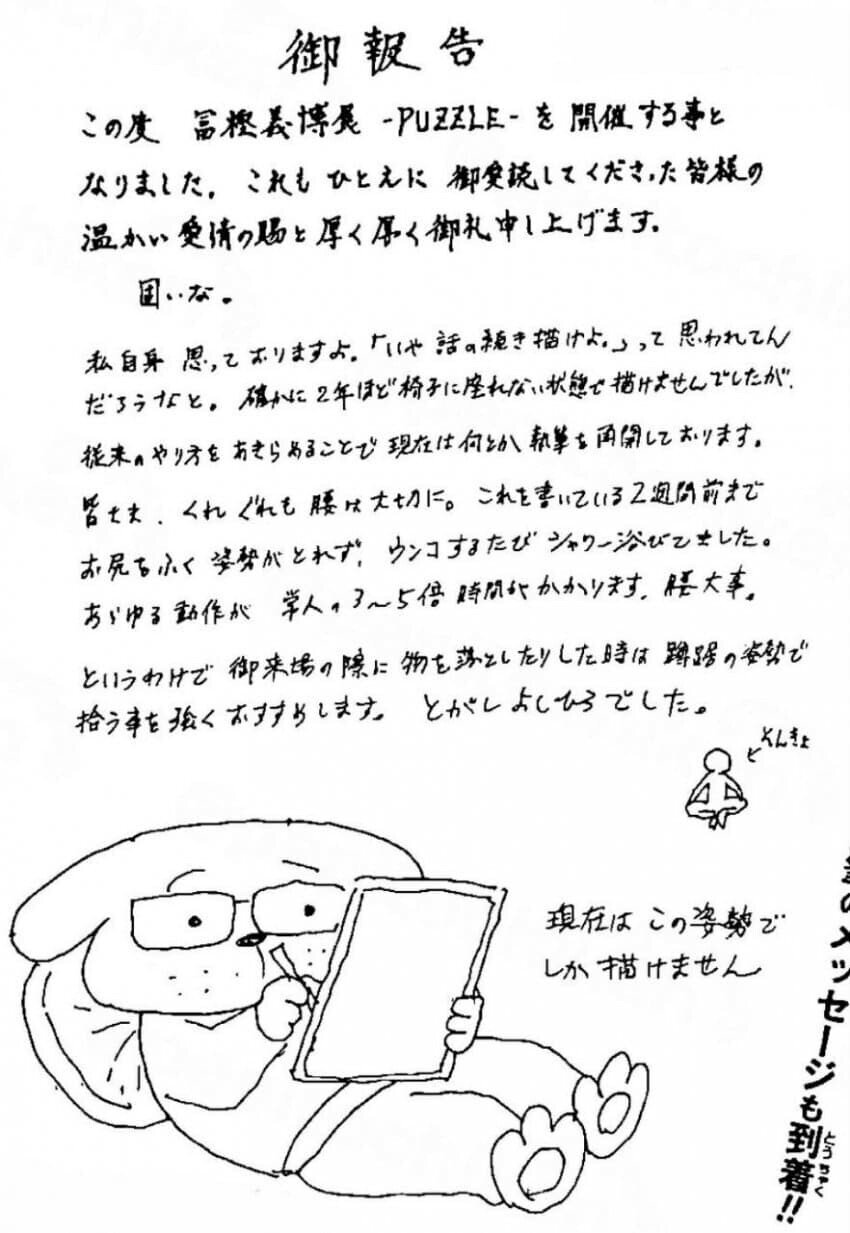 御報告
この度 冨樫義博展 -PUZZLE- を開催する事と
なりました。これもひとえに 御愛読してくださった皆様の
温かい愛情の賜と厚く厚く御礼申し上げます。
固いな。
私自身 思っておりますよ。「いや 話の続き描けよ。」って思われてん
だろうなと。確かに2年ほど椅子に座れない状態で描けませんでしたが、
従来のやり方をあきらめることで現在は何とか執筆を再開しております。
皆さま、くれぐれも腰は大切に。これを書いている2週間前まで
お尻をふく姿勢がとれず、ウンコするたびシャワー浴びてました。
あらゆる動作が 常人の3〜5倍時間がかかります。腰大事。
というわけで 御来場の際に物を落としたりした時は 蹲踞の姿勢で
拾う事を強くおすすめします。 とがしよしひろでした。
そんきょ
現在は この姿勢で
しか描けません
のメッセージも到着!!
とうちゃく